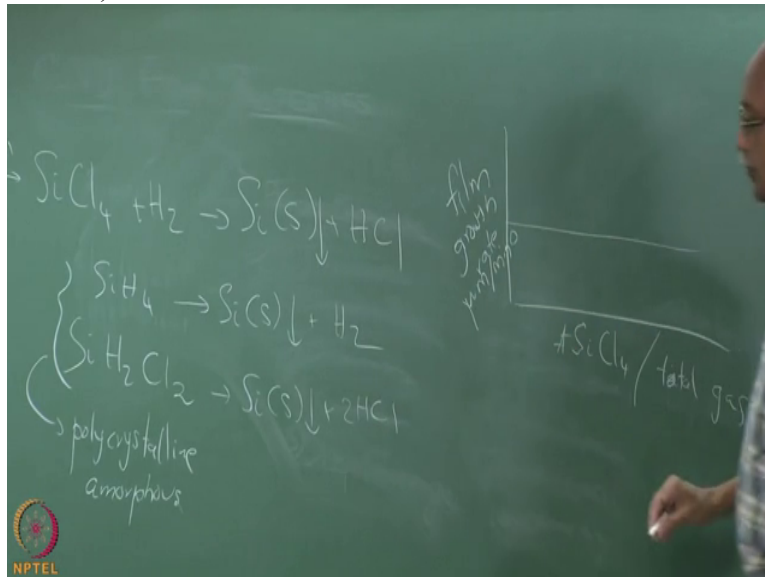 SiCl4 + H2 → Si(s)↓ + HCl
SiH4 → Si(s)↓ + H2
SiH2Cl2 → Si(s)↓ + 2HCl
polycrystalline
amorphous
film
growth
rate
μm/min
0
SiCl4 / total gas
NPTEL